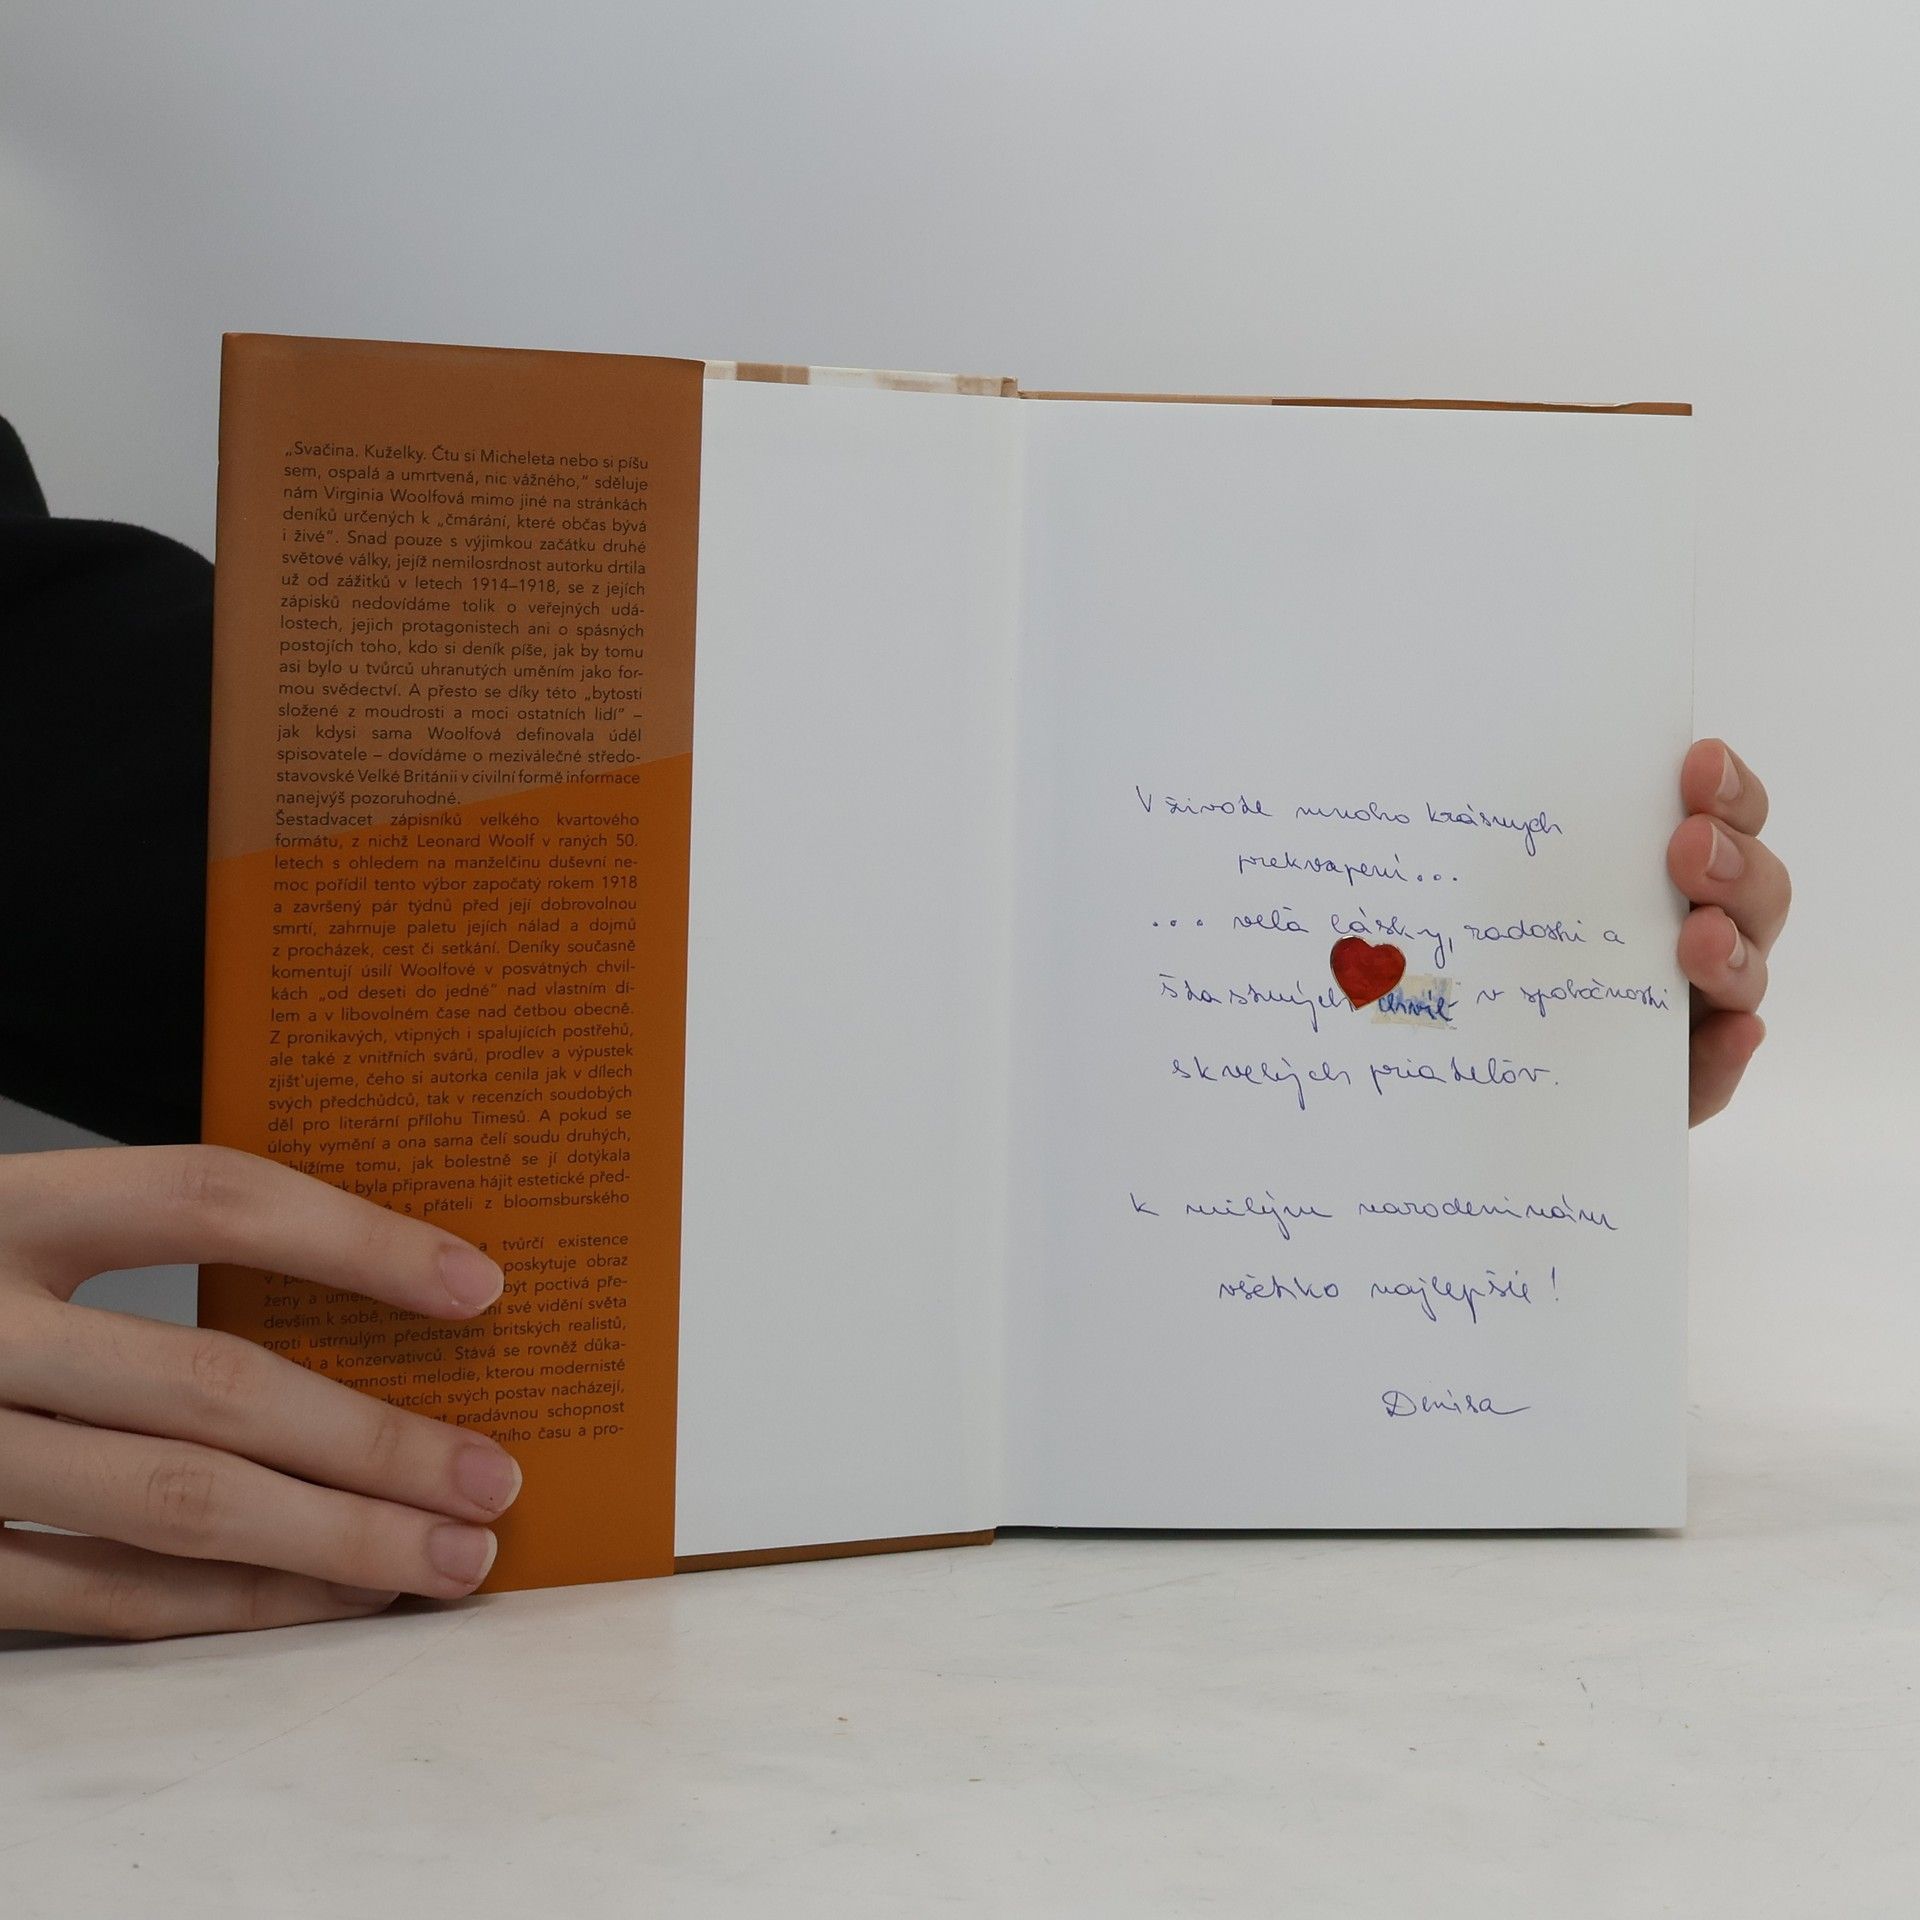 „Svačina. Kuželky. Čtu si Micheleta nebo si píšu
sem, ospalá a umrtvená, nic vážného,“ sděluje
nám Virginia Woolfová mimo jiné na stránkách
deníků určených k „čmárání, které občas bývá
i živé“. Snad pouze s výjimkou začátku druhé
světové války, jejíž nemilosrdnost autorku drtila
už od zážitků v letech 1914–1918, se z jejích
zápisků nedovídáme tolik o veřejných udá-
lostech, jejich protagonistech ani o spásných
postojích toho, kdo si deník píše, jak by tomu
asi bylo u tvůrců uhranutých uměním jako for-
mou svědectví. A přesto se díky této „bytosti
složené z moudrosti a moci ostatních lidí“ –
jak kdysi sama Woolfová definovala úděl
spisovatele – dovídáme o meziválečné středo-
stavovské Velké Británii v civilní formě informace
nanejvýš pozoruhodné.
Šestadvacet zápisníků velkého kvartového
formátu, z nichž Leonard Woolf v raných 50.
letech s ohledem na manželčinu duševní ne-
moc pořídil tento výbor započatý rokem 1918
a završený pár týdnů před její dobrovolnou
smrtí, zahrnuje paletu jejích nálad a dojmů
z procházek, cest či setkání. Deníky současně
komentují úsilí Woolfové v posvátných chvil-
kách „od deseti do jedné“ nad vlastním dí-
lem a v libovolném čase nad četbou obecně.
Z pronikavých, vtipných i spalujících postřehů,
ale také z vnitřních svárů, prodlev a výpustek
zjišťujeme, čeho si autorka cenila jak v dílech
svých předchůdců, tak v recenzích soudobých
děl pro literární přílohu Timesů. A pokud se
úlohy vymění a ona sama čelí soudu druhých,
blížíme tomu, jak bolestně se jí dotýkala
jak byla připravena hájit estetické před-
s přáteli z bloomsburského
a tvůrčí existence
poskytuje obraz
ženy a být poctivá pře-
devším k sobě, své vidění světa
proti ustrnulým představám britských realistů,
a konzervativců. Stává se rovněž důka-
melodie, kterou modernisté
skutcích svých postav nacházejí,
pradávnou schopnost
času a pro-
V živote mnoho krásnych
prekvapení...
... veľa lásky, radosti a
šťastných chvíľ v spoločnosti
skvelých priateľov.
K milým narodeninám
všetko najlepšie!
Denisa